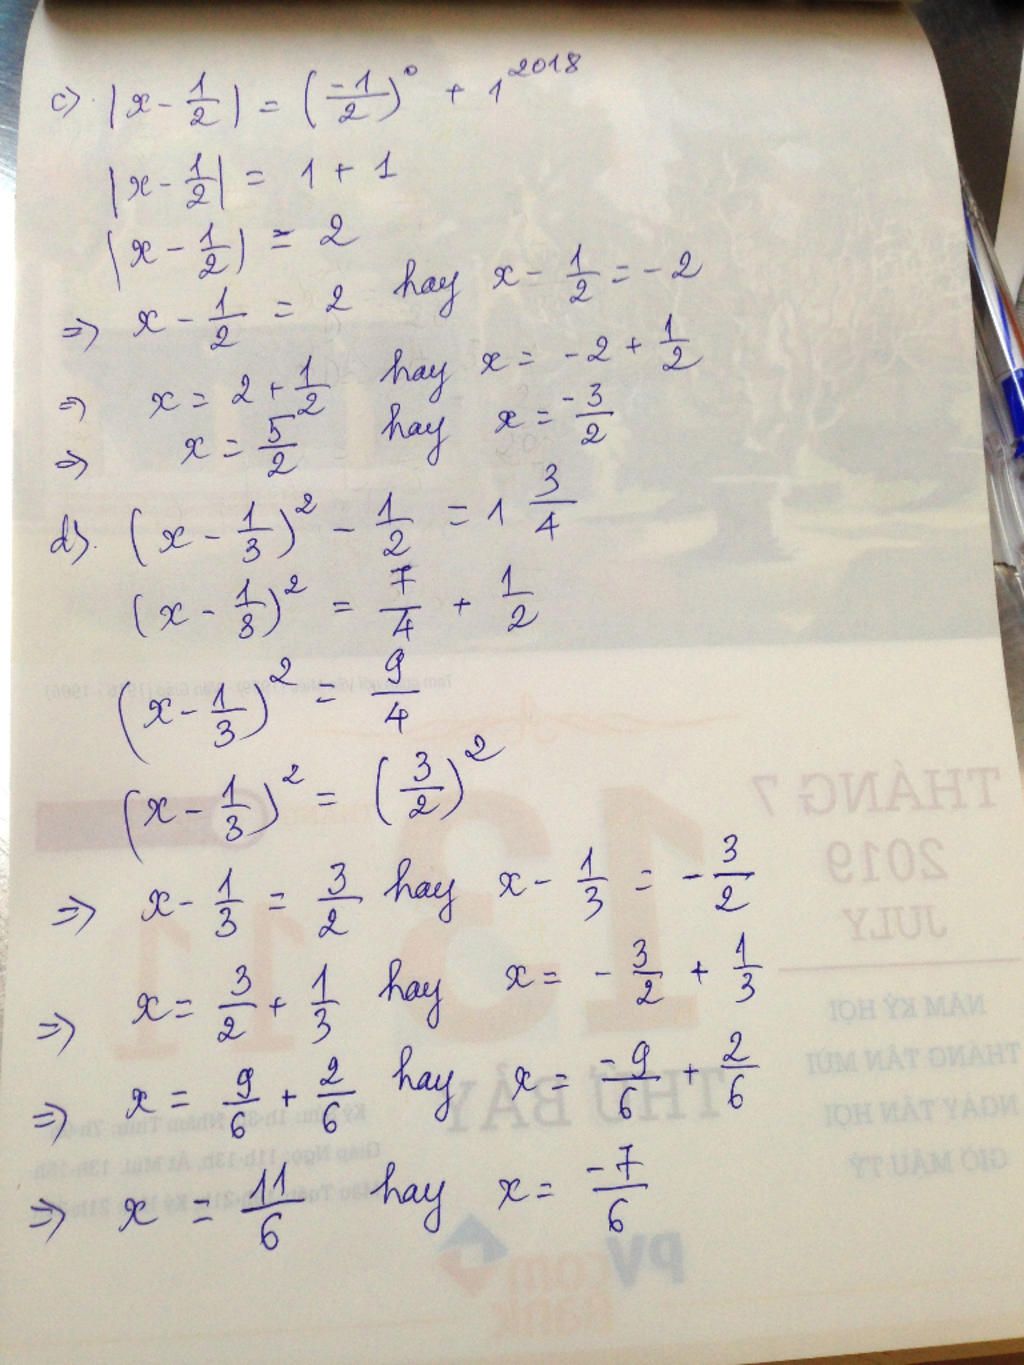 c) |x - 1/2| = (-1/2)⁰ + 1²⁰¹⁸
|x - 1/2| = 1 + 1
|x - 1/2| = 2
=> x - 1/2 = 2 hay x - 1/2 = -2
=> x = 2 + 1/2 hay x = -2 + 1/2
=> x = 5/2 hay x = -3/2
d). (x - 1/3)² - 1/2 = 1 3/4
(x - 1/3)² = 7/4 + 1/2
(x - 1/3)² = 9/4
(x - 1/3)² = (3/2)²
=> x - 1/3 = 3/2 hay x - 1/3 = -3/2
=> x = 3/2 + 1/3 hay x = -3/2 + 1/3
=> x = 9/6 + 2/6 hay x = -9/6 + 2/6
=> x = 11/6 hay x = -7/6
THÁNG 7
2019
JULY
13
11
NĂM KỶ HỢI
THÁNG TÂN MÙI
NGÀY TÂN HỢI
GIỜ MẬU TÝ
THỨ BẢY
PV
com
Bank